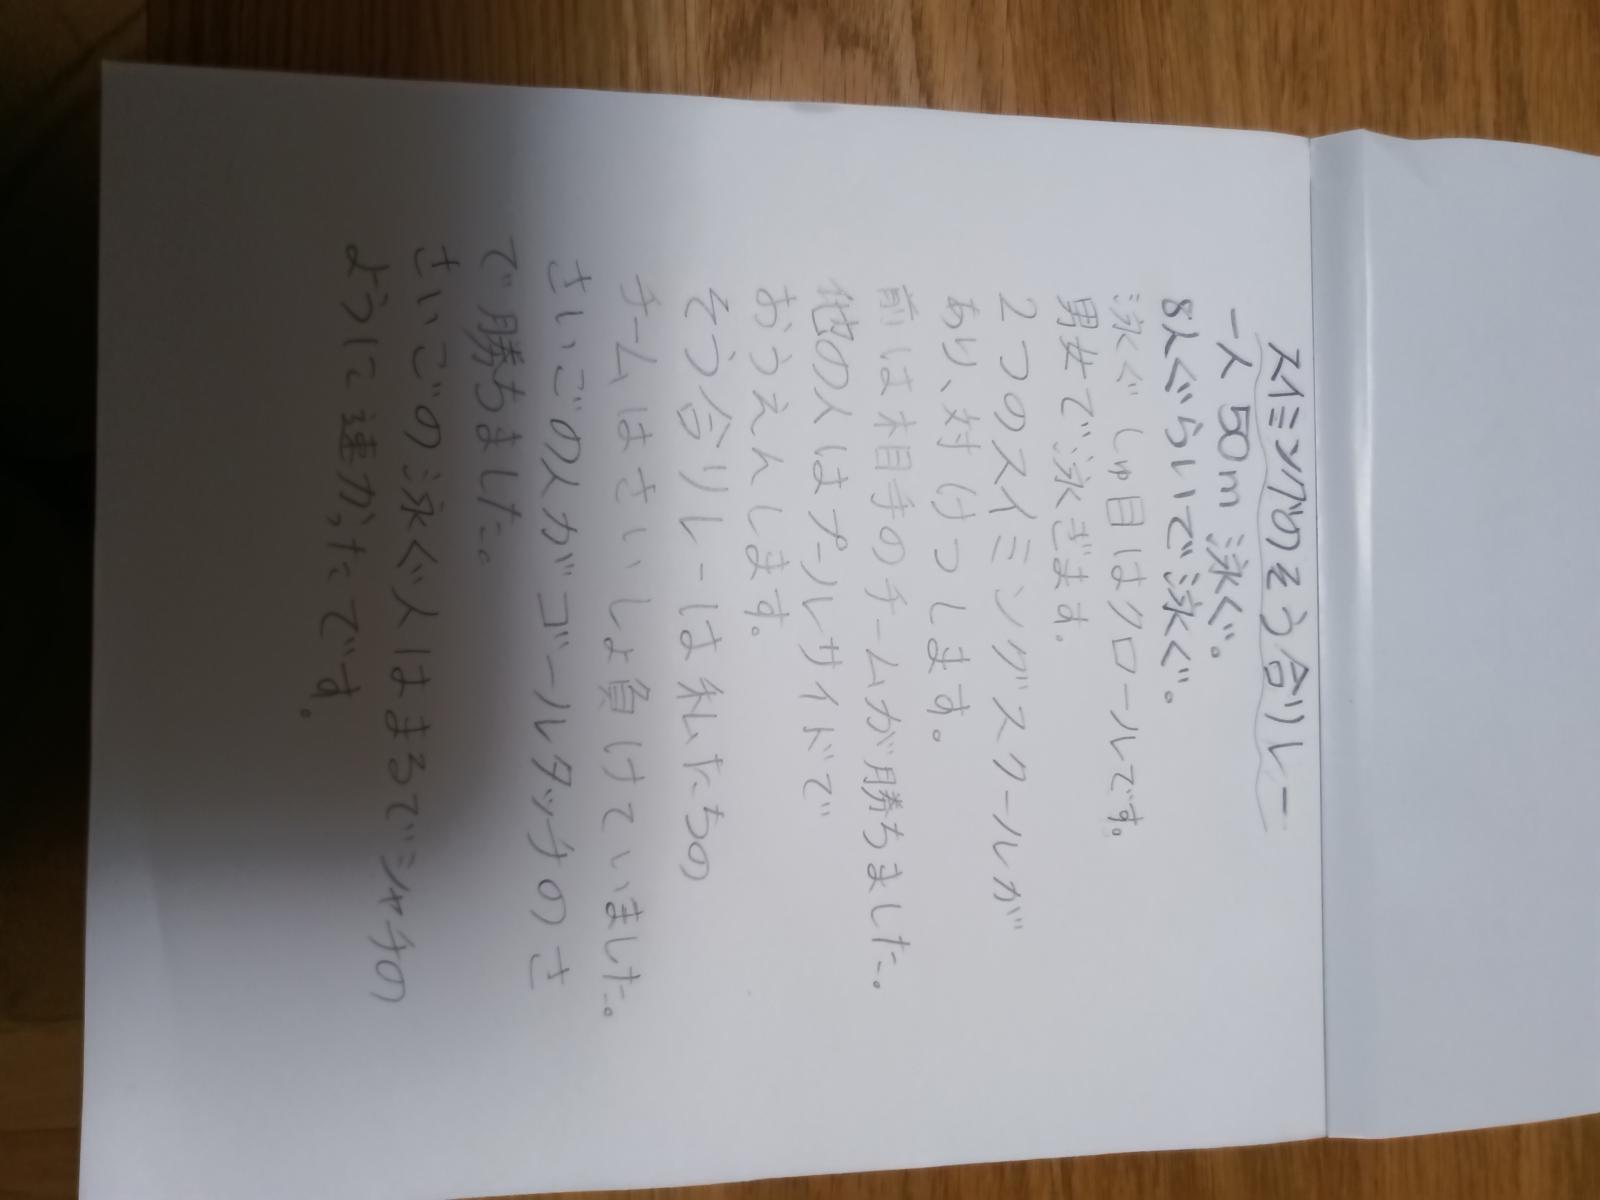 スイミングのそう合リレー
一人50m泳ぐ。
8人ぐらいで泳ぐ。
泳ぐしゅ目はクロールです。
男女で泳ぎます。
2つのスイミングスクールが
あり、対けつします。
前は相手のチームが勝ちました。
他の人はプールサイドで
おうえんします。
そう合リレーは私たちの
チームはさいしょ負けていました。
さいごの人がゴールタッチのさ
で勝ちました。
さいごの泳ぐ人はまるでシャチの
ように速かったです。